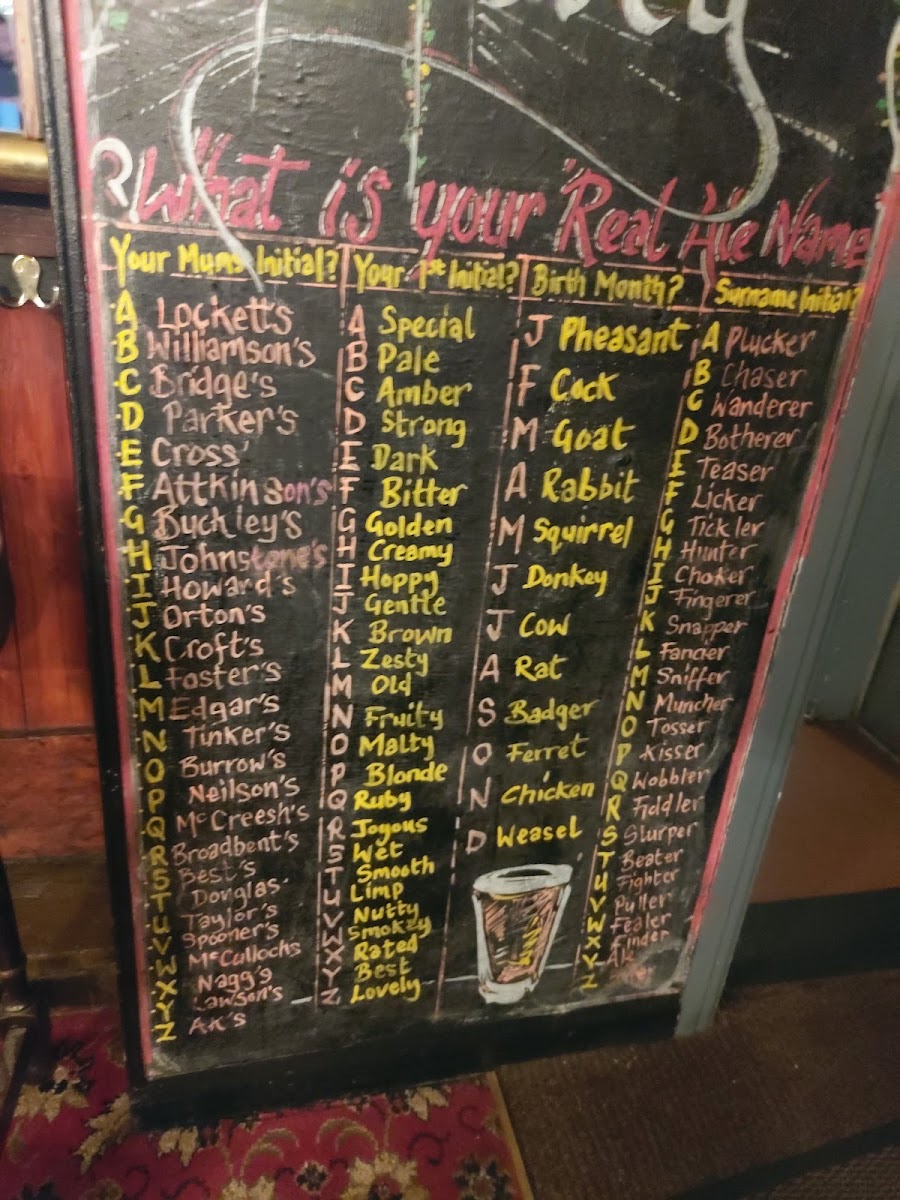 What is your "Real Ale Name"
Your Mums Initial?
A Lockett's
B Williamson's
C Bridge's
D Parker's
E Cross'
F Attkinson's
G Buckley's
H Johnstone's
I Howard's
J Orton's
K Croft's
L Foster's
M Edgar's
N Tinker's
O Burrow's
P Neilson's
Q McCreesh's
R Broadbent's
S Best's
T Douglas'
U Taylor's
V Spooner's
W McCullochs
X Nagg's
Y Lawson's
Z AK's
Your 1st Initial?
A Special
B Pale
C Amber
D Strong
E Dark
F Bitter
G Golden
H Creamy
I Hoppy
J Gentle
K Brown
L Zesty
M Old
N Fruity
O Malty
P Blonde
Q Ruby
R Joyous
S Wet
T Smooth
U Limp
V Nutty
W Smokey
X Rated
Y Best
Z Lovely
Birth Month?
J Pheasant
F Cock
M Goat
A Rabbit
M Squirrel
J Donkey
J Cow
A Rat
S Badger
O Ferret
N Chicken
D Weasel
Surname Initial?
A Plucker
B Chaser
C Wanderer
D Botherer
E Teaser
F Licker
G Tickler
H Hunter
I Choker
J Fingerer
K Snapper
L Fancier
M Sniffer
N Muncher
O Tosser
P Kisser
Q Wobbler
R Fiddler
S Slurper
T Beater
U Fighter
V Puller
W Fealer
X Finder
Y
Z